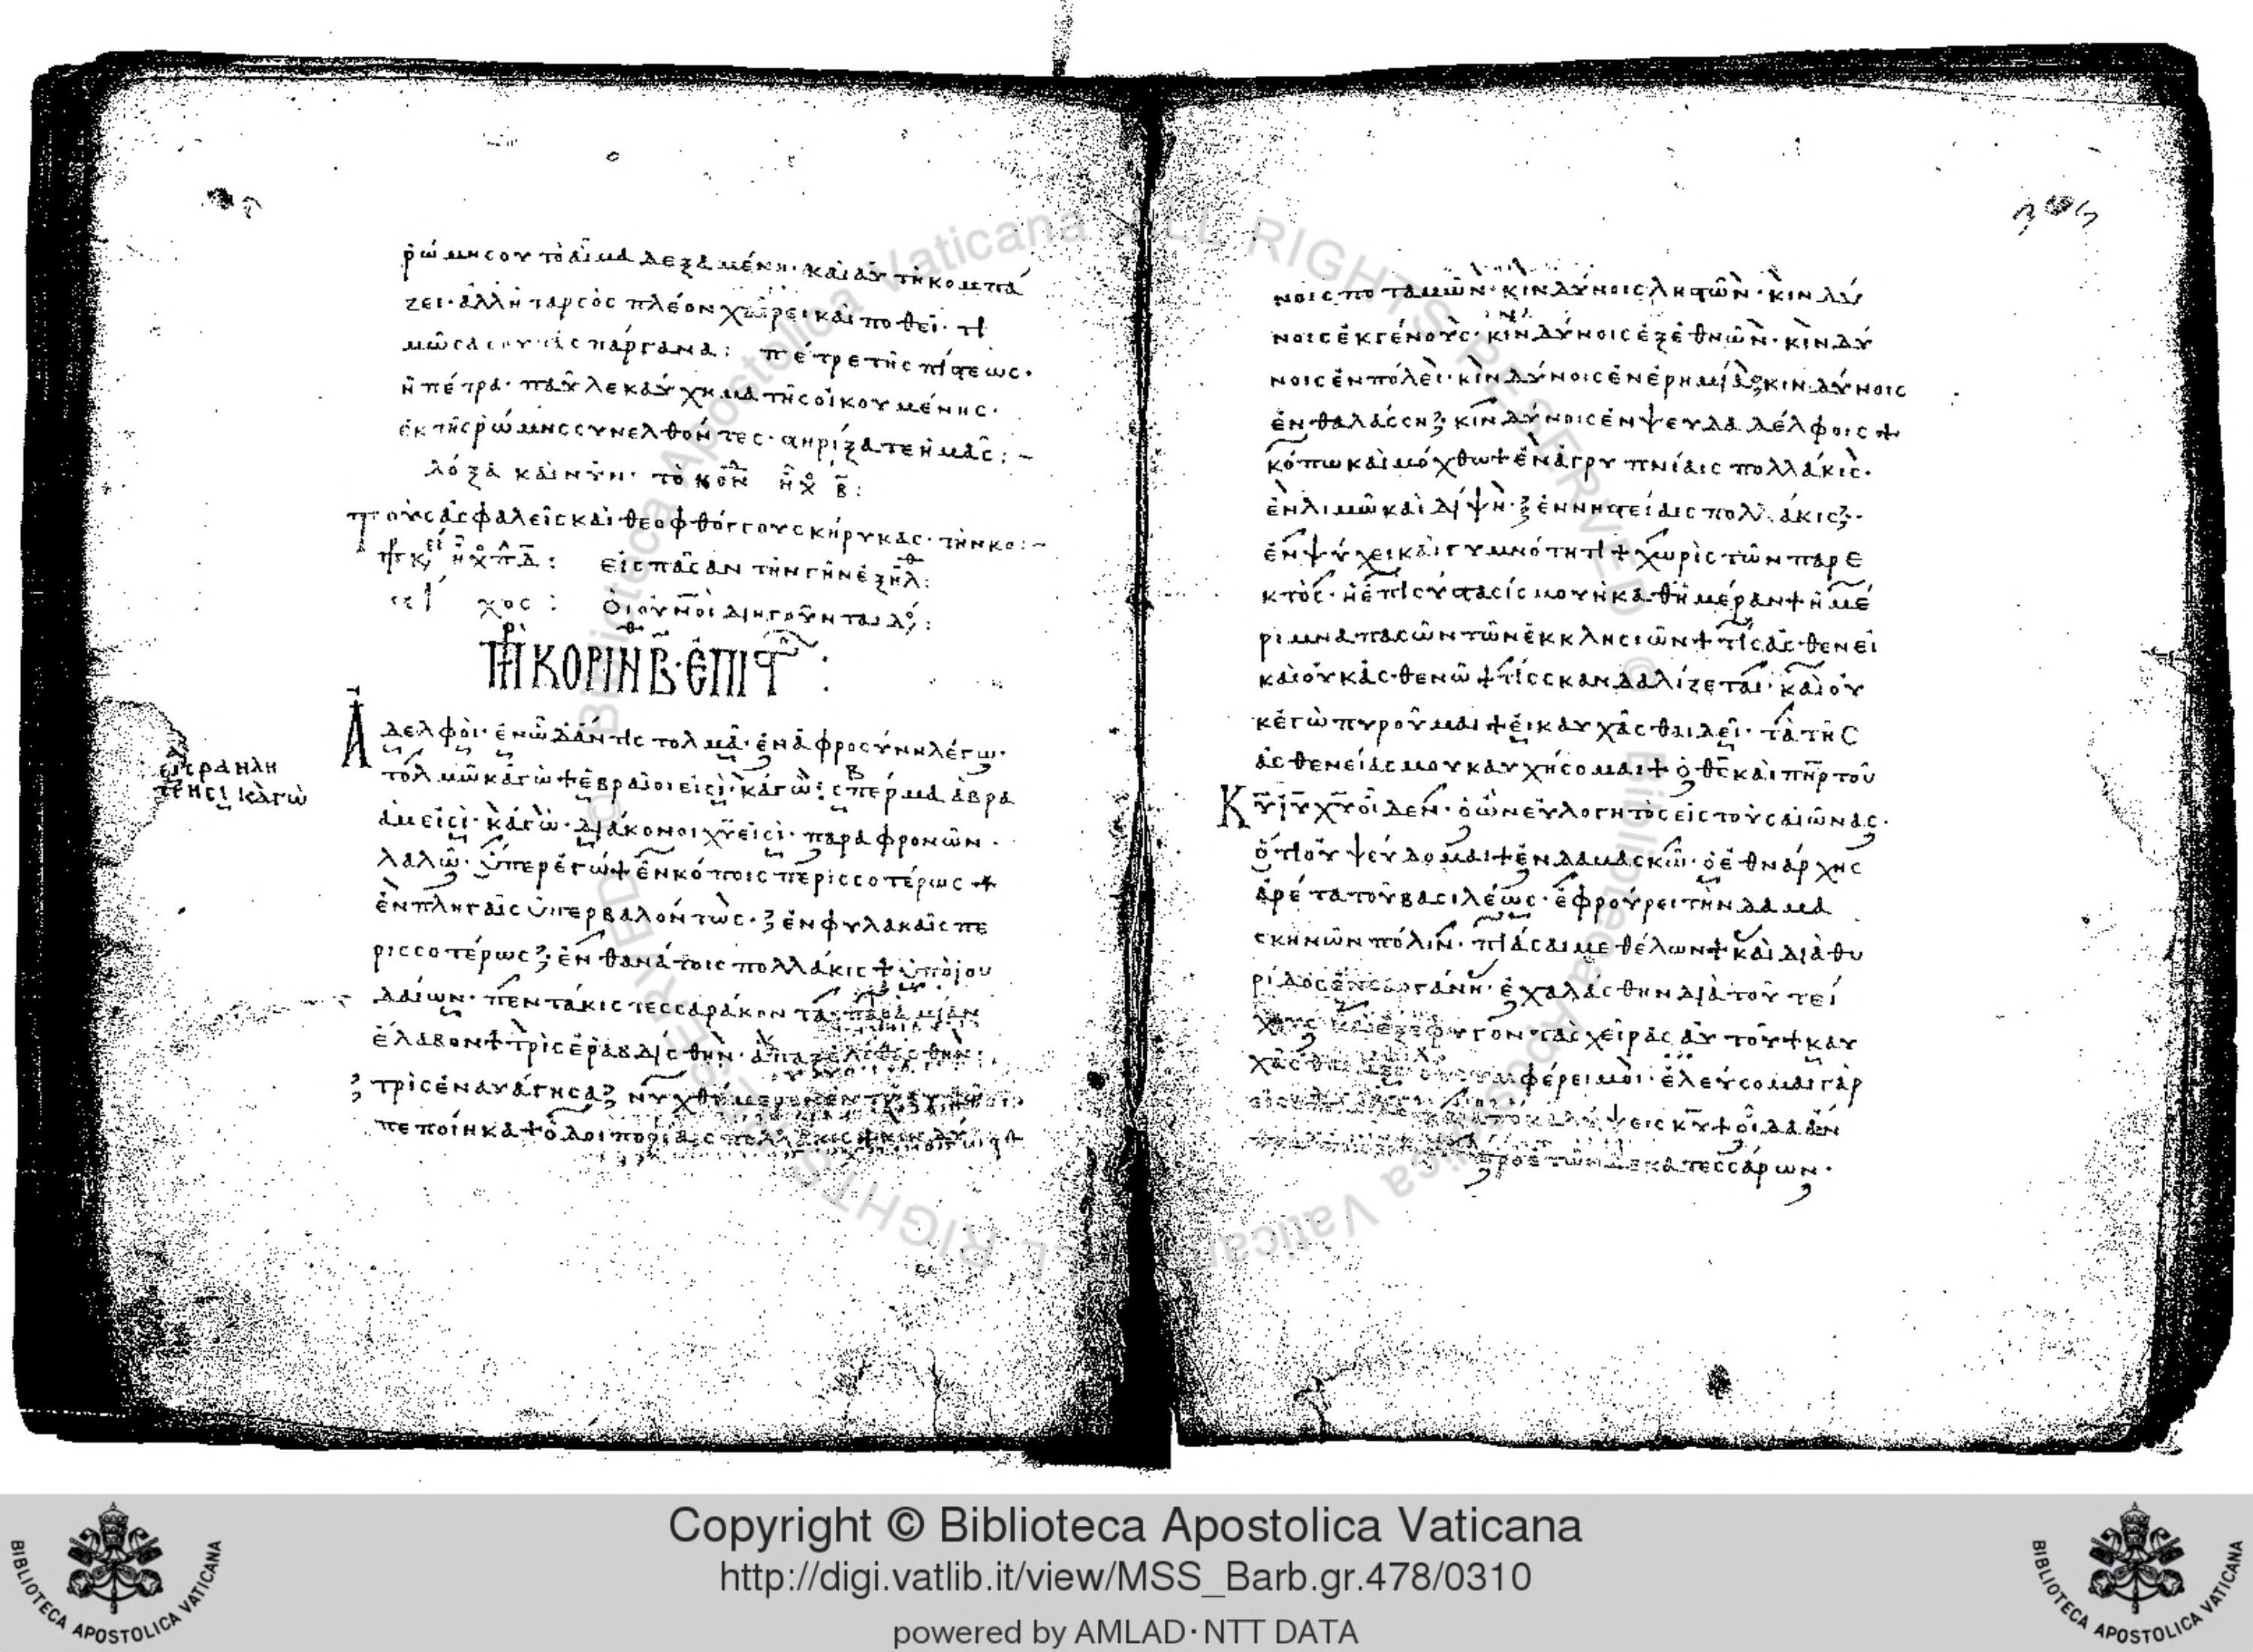 ῥώμη σου τὸ αἷμα δεξαμένη· καὶ αὐτὴ κομπά
ζει· ἀλλ ἡ ταρσὸς πλέον χαίρει καὶ ποθεῖ· τι
μῶσα σου τὰ σπάργανα: πέτρε τῆς πίστεως·
ἡ πέτρα· παῦλε καύχημα τῆς οἰκουμένης·
ἐκ τῆς ῥώμης συνελθόντες· στηρίξατε ἡμᾶς:~
δόξα καὶ νῦν· τὸ κον ηχ β:
Τοὺς ἀσφαλεῖς καὶ θεοφθόγγους κήρυκας· τὴν κο:~
ηχ πδ: εἰς πᾶσαν τὴν γῆν ἐξηλθ:
στίχος: Οἱ οὐνοὶ διηγοῦνται δο:
ΠΡ ΚΟΡΙΝΘ Β· ΕΠΙΣΤ:
Ἀδελφοὶ· ἐν ᾧ δάν τις τολμᾶ· ἐν ἀφροσύνη λέγω·
τολμῶ κἀγὼ + ἑβραῖοι εἰσὶ· κἀγὼ: σπέρμα ἀβρα
ἀμ εἰσὶ· κἀγὼ· διάκονοι χυ εἰσὶ· παραφρονῶν·
λαλῶ· ὑπὲρ ἐγώ + ἐν κόποις περισσοτέρως +
ἐν πληγαῖς ὑπερβαλόντως· ἐν φυλακαῖς πε
ρισσοτέρως· ἐν θανάτοις πολλάκις + ὑπὸ ἰου
δαίων· πεντάκις τεσσαράκοντα· παρὰ μίαν
ἔλαβον + τρὶς ἐραβδίσθην· ἅπαξ ἐλιθάσθην·
τρὶς ἐναυάγησα· νυχθήμερον ἐν τῶ βυθῶ
πεποίηκα + ὁδοιπορίαις πολλάκις + κινδύ
ἰσραηλῖ
τε εἰσὶ κἀγὼ
νοις ποταμῶν· κινδύνοις ληστῶν· κινδύ
νοις ἐκ γένους· κινδύνοις ἐξ ἐθνῶν· κινδύ
νοις ἐν πόλει· κινδύνοις ἐν ἐρημία· κινδύνοις
ἐν θαλάσση· κινδύνοις ἐν ψευδαδέλφοις +
κόπω καὶ μόχθω + ἐν ἀγρυπνίαις πολλάκις·
ἐν λιμῶ καὶ δίψη· ἐν νηστείαις πολλάκις·
ἐν ψύχει καὶ γυμνότητι + χωρὶς τῶν παρε
κτὸς· ἡ ἐπισύστασίς μου ἡ καθ ἡμέραν + ἡ μέ
ριμνα πασῶν τῶν ἐκκλησιῶν + τίς ἀσθενεῖ
καὶ οὐκ ἀσθενῶ + τίς σκανδαλίζεται· καὶ οὐ
κ ἐγὼ πυροῦμαι + εἰ καυχᾶσθαι δεῖ· τὰ τῆς
ἀσθενείας μου καυχήσομαι + ὁ θς καὶ πηρ τοῦ
Κυ ιυ χυ οἶδεν· ὁ ὢν εὐλογητὸς εἰς τοὺς αἰῶνας·
ὅτι οὐ ψεύδομαι + ἐν δαμασκῶ· ὁ ἐθνάρχης
ἀρέτα τοῦ βασιλέως· ἐφρούρει τὴν δαμα
σκηνῶν πόλιν· πιάσαι με θέλων + καὶ διὰ θυ
ρίδος ἐν σαργάνη· ἐχαλάσθην διὰ τοῦ τεί
χους καὶ ἐξέφυγον τὰς χεῖρας αὐτοῦ + καυ
χᾶσθαι συμφέρει μοι· ἐλεύσομαι γὰρ
ἀποκαλύψεις κυ + οἶδα ἄν
πρὸ ἐτῶν δεκατεσσάρων·
Copyright © Biblioteca Apostolica Vaticana
http://digi.vatlib.it/view/MSS_Barb.gr.478/0310
powered by AMLAD·NTT DATA
BIBLIOTECA APOSTOLICA VATICANA
BIBLIOTECA APOSTOLICA VATICANA